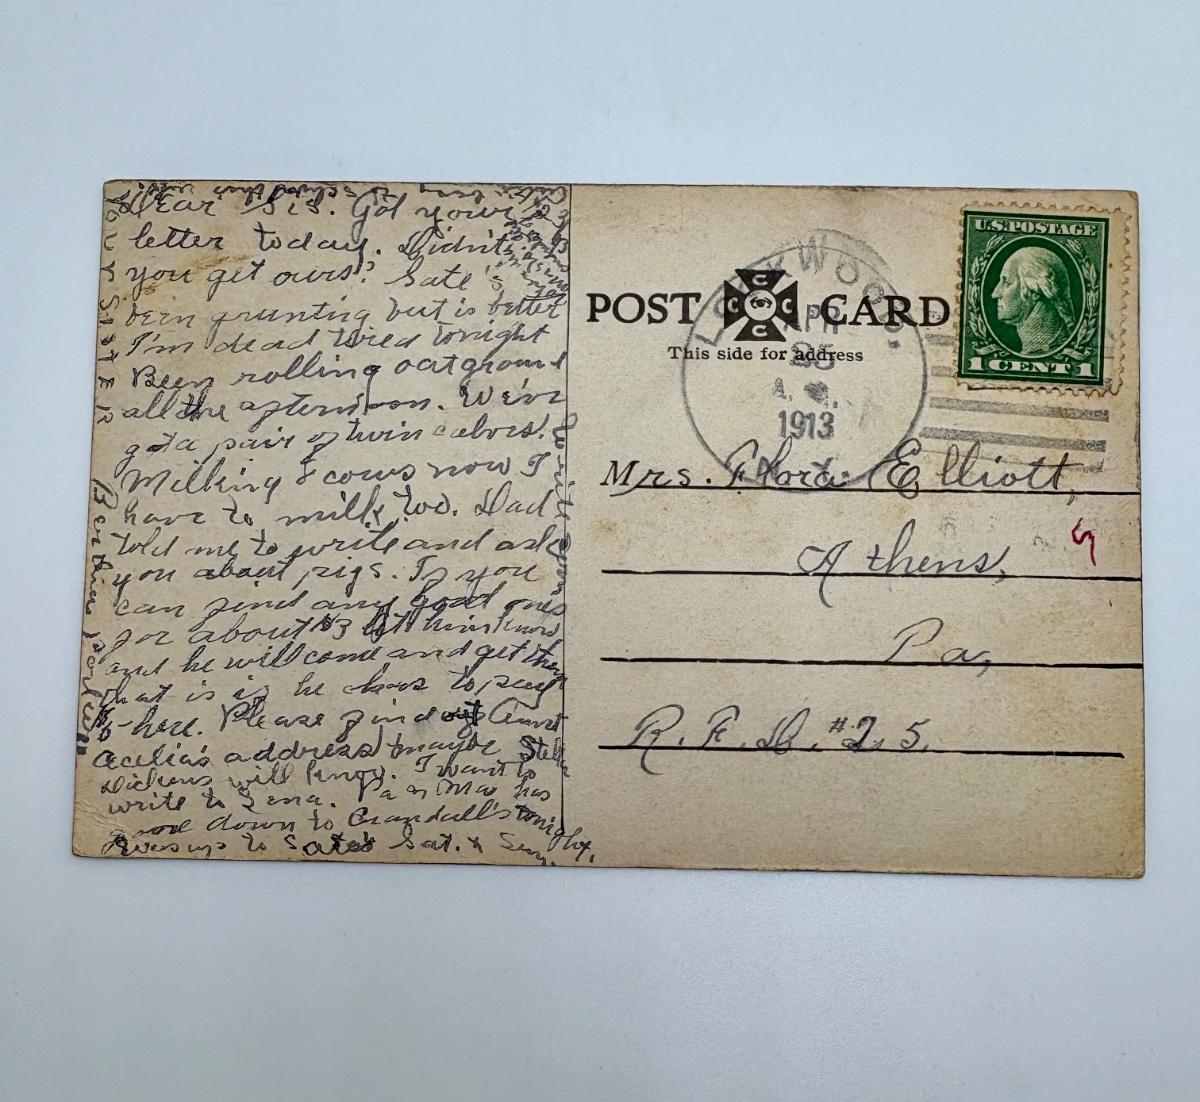 Dear Sis. Got your
letter today. Didn't
you get ours? Sate's
been grunting but is better
I'm dead tired tonight
Been rolling oat ground
all the afternoon. We've
got a pair of twin calves.
Milking 8 cows now I
have to milk too. Dad
told me to write and ask
you about pigs. If you
can find any good ones
for about $3 let him know
and he will come and get them
that is if he has to pay
here. Please find out Aunt
Cecelia's address maybe Stella
Dickens will know. I want to
write to Lena. Pa and Ma has
gone down to Crandall's tonight.
I was up to Sate's Sat. & Sun.
Write soon
YOUR SISTER
POST CARD
C C C C
This side for address
LOCKWOOD
APR
25
A. M.
1913
U.S. POSTAGE
1 CENT 1
Mrs. Flora Elliott,
Athens,
Pa,
R. F. D. #25.